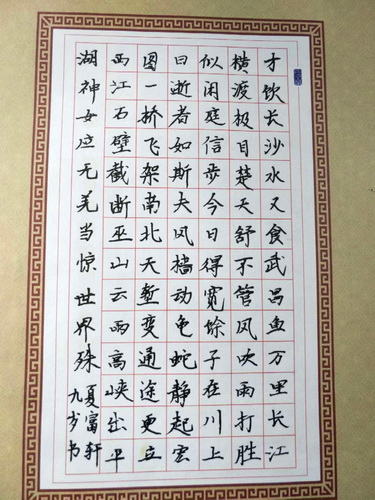 才饮长沙水又食武昌鱼万里长江
横渡极目楚天舒不管风吹雨打胜
似闲庭信步今日得宽馀子在川上
曰逝者如斯夫风樯动龟蛇静起宏
图一桥飞架南北天堑变通途更立
西江石壁截断巫山云雨高峡出平
湖神女应无羌当惊世界殊
夏富轩
九岁书